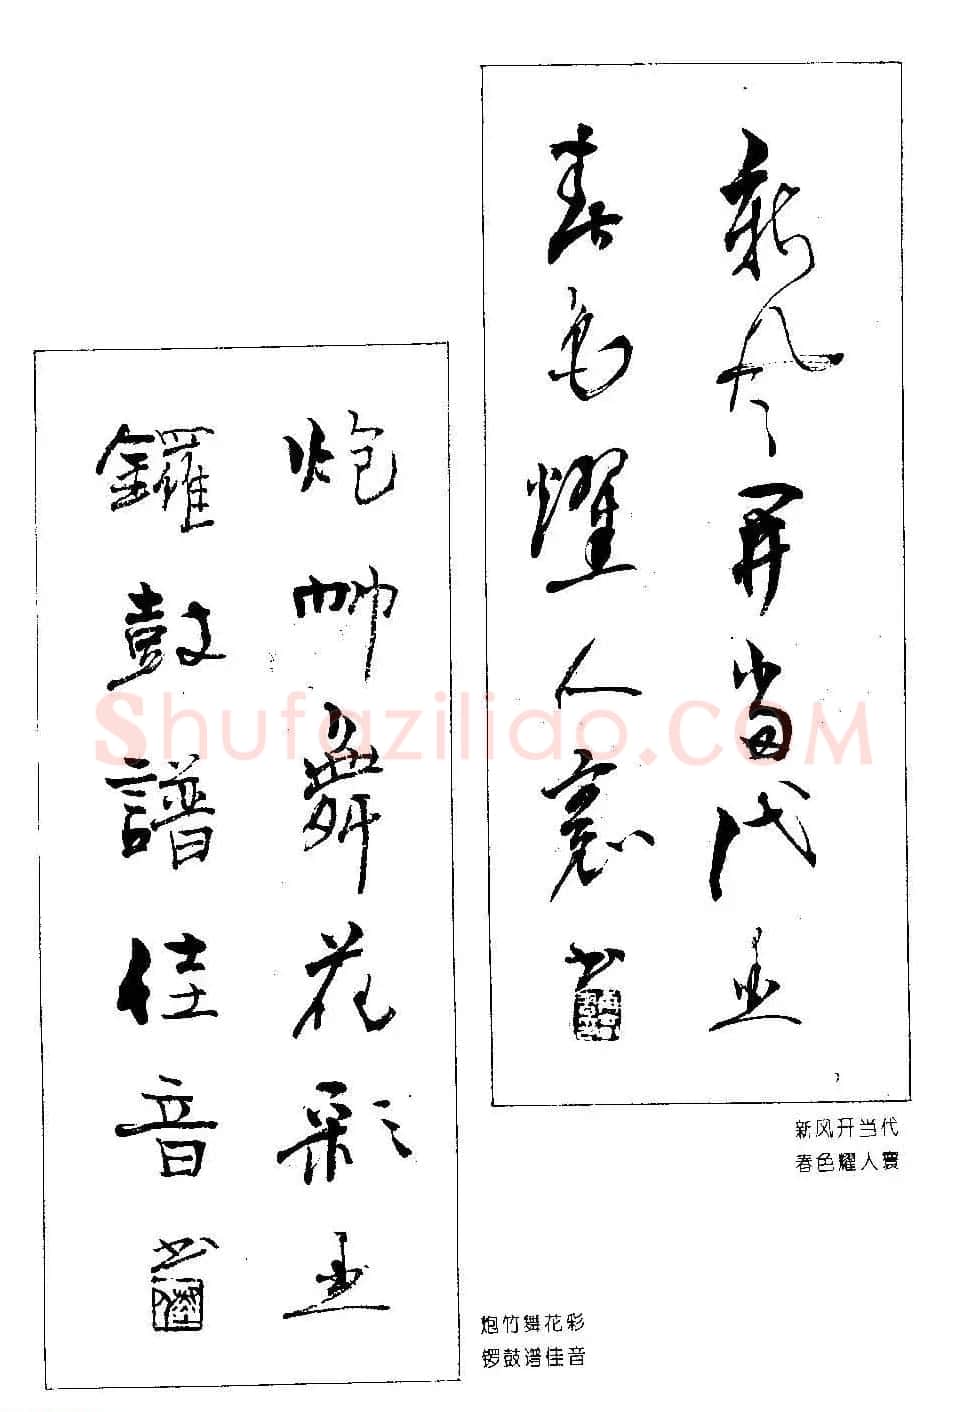 新风开当代
春色耀人寰
书
新风开当代
春色耀人寰
炮竹舞花彩
鑼鼓譜佳音
书
炮竹舞花彩
锣鼓谱佳音
Shufaziliao.COM